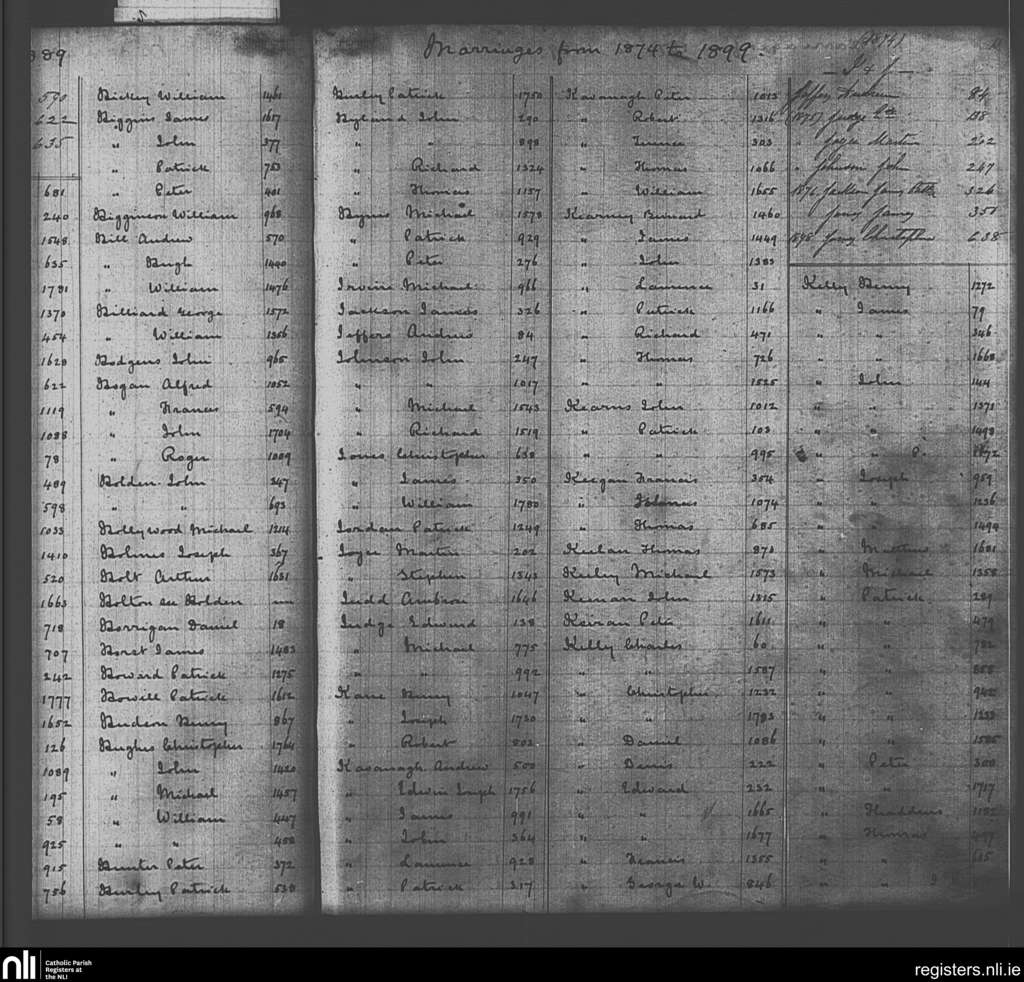 889
Marriages from 1874 to 1899.
590
622
635
681
240
1548
635
1781
1370
454
1628
622
1119
1088
78
489
598
1033
1410
520
1663
718
707
242
1777
1652
126
1089
195
58
925
915
756
Hickey William 1461
Higgins James 1617
" John 377
" Patrick 753
" Peter 401
Higginson William 968
Hill Andrew 570
" Hugh 1490
" William 1476
Hilliard George 1572
" William 1356
Hodgens John 965
Hogan Alfred 1052
" Francis 594
" John 1704
" Roger 1009
Holden John 347
" " 693
Hollywood Michael 1214
Holmes Joseph 367
Holt Arthur 1631
Holton see Holden
Horrigan Daniel 18
Horst James 1483
Howard Patrick 1275
Howill Patrick 1612
Hudson Henry 867
Hughes Christopher 1764
" John 1420
" Michael 1457
" William 447
" " 458
Hunter Peter 372
Hurley Patrick 538
Hurley Patrick 1750
Hyland John 290
" " 898
" Richard 1324
" Thomas 1157
Hynes Michael 1578
" Patrick 929
" Peter 276
Irvine Michael 966
Jackson James 326
Jeffers Andrew 84
Johnson John 247
" " 1017
" Michael 1543
" Richard 1519
Jones Christopher 638
" James 350
" William 1780
Jordan Patrick 1249
Joyce Martin 202
" Stephen 1343
Judd Ambrose 1646
Judge Edward 138
" Michael 775
" " 992
Kane Henry 1047
" Joseph 1730
" Robert 802
Kavanagh Andrew 500
" Edwin Joseph 1756
" James 991
" John 364
" Laurence 928
" Patrick 317
Kavanagh Peter 1013
" Robert 1316
" Terence 303
" Thomas 1066
" William 1655
Kearney Bernard 1460
" James 1449
" John 1383
" Laurence 31
" Patrick 1166
" Richard 471
" Thomas 726
" " 1525
Kearns John 1012
" Patrick 103
" " 995
Keegan Francis 354
" Thomas 1074
" Thomas 685
Keelan Thomas 870
Keeley Michael 1573
Keenan John 1315
Keiran Peter 1611
Kelly Charles 60
" " 1587
" Christopher 1232
" " 1783
" Daniel 1086
" Denis 222
" Edward 232
" " 1665
" " 1677
" Francis 1355
" George W. 846
(1874)
I & J
84
(1875) Judge 138
" Joyce Martin 202
" Johnson John 247
1876 Jackson James 326
Jones James 351
1898 Jones Christopher 638
Kelly Henry 1272
" James 79
" " 346
" " 1668
" John 144
" " 1371
" " 1498
" " P. 1672
" Joseph 959
" " 1236
" " 1494
" Matthew 1681
" Michael 1358
" Patrick 289
" " 479
" " 782
" " 858
" " 942
" " 1333
" " 1585
" Peter 300
" " 1717
" Thaddeus 1152
" Thomas
" "
nli
Catholic Parish
Registers at
the NLI
registers.nli.ie